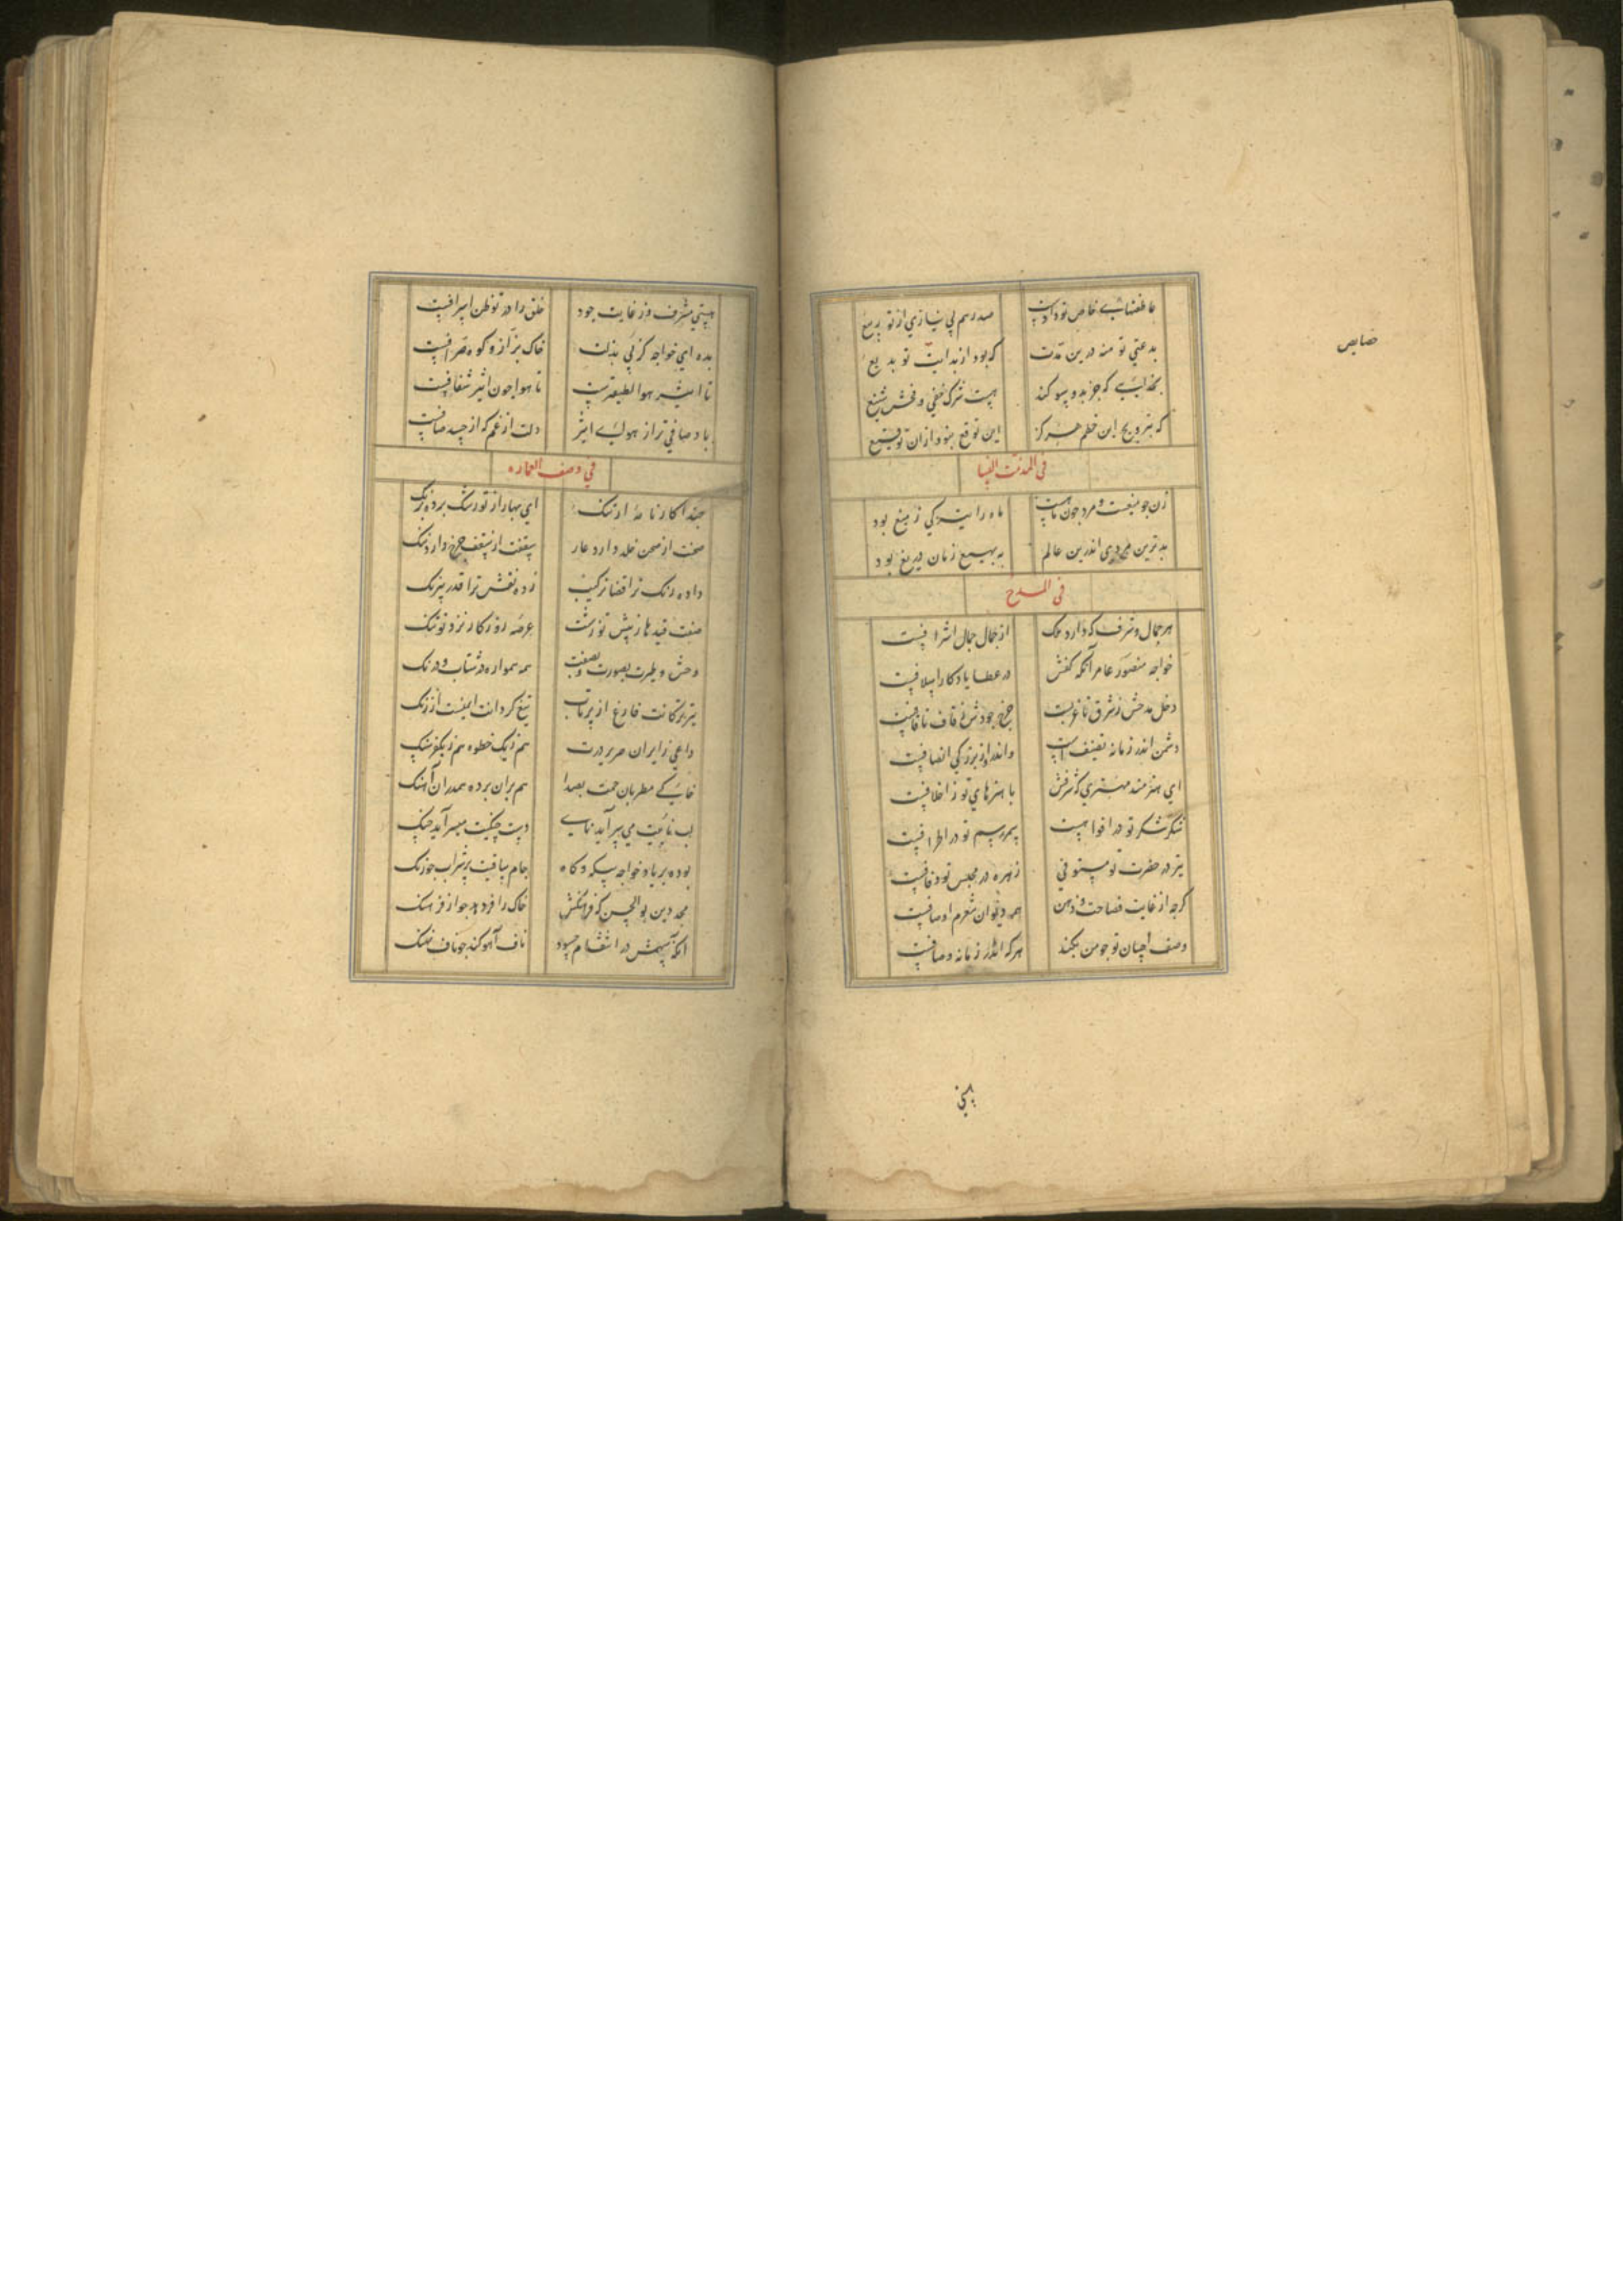 صد رسم بی نیازی از تو بدیع
بدعتی تو منه درین مدت
که بود از بدایت تو بدیع
بخدایی که جز بدو سوگند
هست شرک خفی و فحش شنیع
که بترویج این خطم هرگز
این توقع بنود از ان توقیع
فی المذمت النسا
زن جو میغست و مرد جون ماهست
ماه را تیرگی ز میغ بود
بدترین مردی اندرین عالم
به بهین زنان دریغ بود
فی المدح
هر جمال و شرف که دارد ملک
از جمال جمال اشرافست
خواجه منصور عامر آنکه کفش
در عطا یادکار اسلافست
دخل مدحش ز شرق تا غربست
خرج جودش ز قاف تا قافست
دشمن اندر زمانه تصنیف است
واندر از بزرکی انصافست
ای هنرمند مهتری که شرفش
با هنرهای تو ز اخلافست
شکر شکر تو در افواهست
سمر رسم تو در اطرافست
تیر در حضرت تو مستوفی
زهره در مجلس تو دفافست
کرچه از غایت فصاحت و ذهن
همه دیوان شعرم اوصافست
وصف احسان تو جو من نکند
هرکه اندر زمانه وصافست
نیستی مشرف و ز غایت جود
خلق را در تو ظن اسرافست
بده ای خواجه کز پی بذلت
خاک بزاز و کوه صرافست
تا اثیر هوا لطیفترست
تا هوا جون اثیر شفافست
باد صافی تر از هوای اثیر
دلت از غم که از حسد صافست
فی وصف العماره
حبذا کارنامهٔ ارتنک
ای بهار از تو رشک برده برنک
صحنت از صحن خلد دارد عار
سقفت از سقف جرخ دارد ننک
داده رنک ترا قضا ترکیب
زده نقش ترا قدر بیرنک
صنعت قیدها ز پیش تو زشت
عرصه روزکار نزد تو تنک
وحش و طیرت بصورت و بصفت
همه همواره در شتاب و درنک
تیر ترکانت فارغ از پرتاب
تیغ کردانت ایمنست از زنک
هم بران برده همدران آهنک
لب نائیت می سراید نای
دست جنکیت میسراید جنک
بوده بر یاد خواجه بیکه و کاه
جام ساقیت پر شراب جو زنک
مجد دین بو الحسن که فرهنکش
خاک را فر دهد جو از فرهنک
انکه سهمش در انتقام حسود
ناف آهو کند جو ناف نهنک